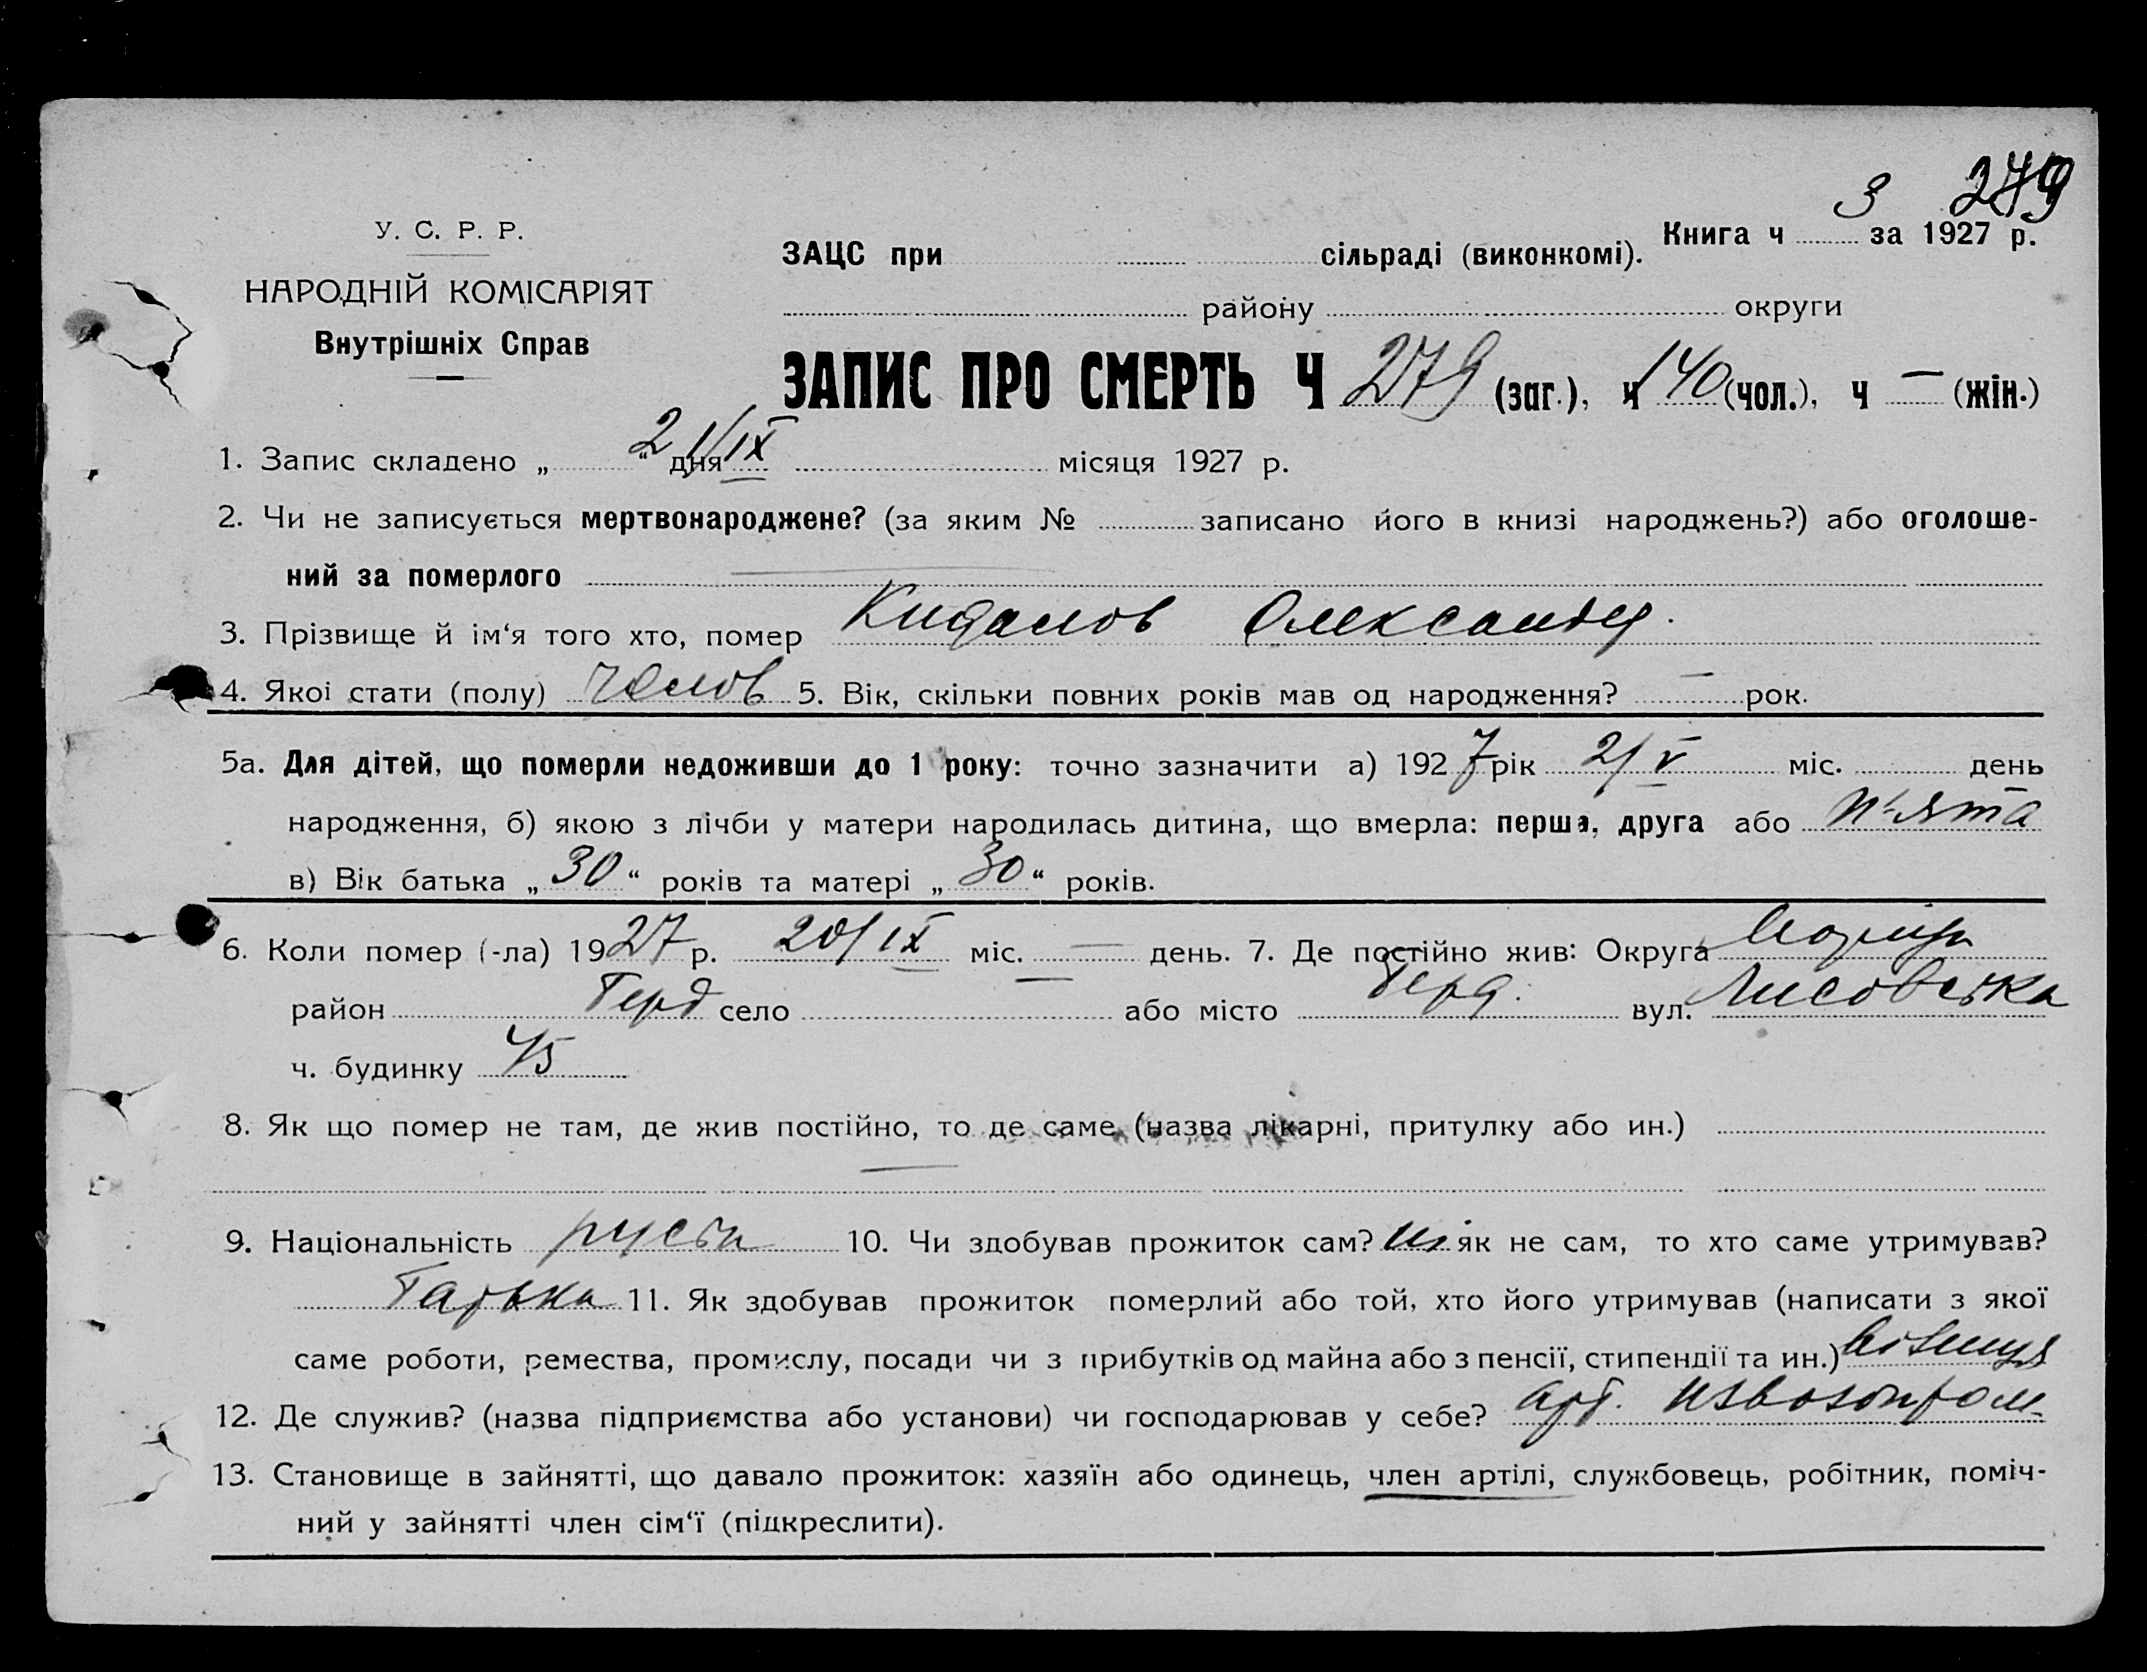 3 279
У. С. Р. Р.
Книга ч за 1927 р.
ЗАЦС при сільраді (виконкомі).
НАРОДНІЙ КОМІСАРІЯТ
району округи
Внутрішніх Справ
ЗАПИС ПРО СМЕРТЬ Ч 279 (заг.), ч 140 (чол.), ч — (жін.)
1. Запис складено „ 21/IX “ дня місяця 1927 р.
2. Чи не записується мертвонароджене? (за яким № записано його в книзі народжень?) або оголоше-
ний за померлого —
3. Прізвище й ім‘я того хто, помер Кидалов Олександр.
4. Якої стати (полу) чолов 5. Вік, скільки повних років мав од народження? — рок.
5а. Для дітей, що померли недоживши до 1 року: точно зазначити а) 1927 рік 2/V міс. день
народження, б) якою з лічби у матери народилась дитина, що вмерла: перша, друга або п‘ята
в) Вік батька „ 30 “ років та матері „ 30 “ років.
6. Коли помер (-ла) 1927 р. 20/IX міс. — день. 7. Де постійно жив: Округа Маріуп
район Берд село — або місто Берд. вул. Лисовська
ч. будинку 45
8. Як що помер не там, де жив постійно, то де саме (назва лікарні, притулку або ин.)
—
9. Національність руськ 10. Чи здобував прожиток сам? ні як не сам, то хто саме утримував?
Батько 11. Як здобував прожиток померлий або той, хто його утримував (написати з якої
саме роботи, ремества, промислу, посади чи з прибутків од майна або з пенсії, стипендії та ин.)
12. Де служив? (назва підприємства або установи) чи господарював у себе? арт. Извозопром
13. Становище в зайнятті, що давало прожиток: хазяїн або одинець, член артілі, службовець, робітник, поміч-
ний у зайнятті член сім‘ї (підкреслити).